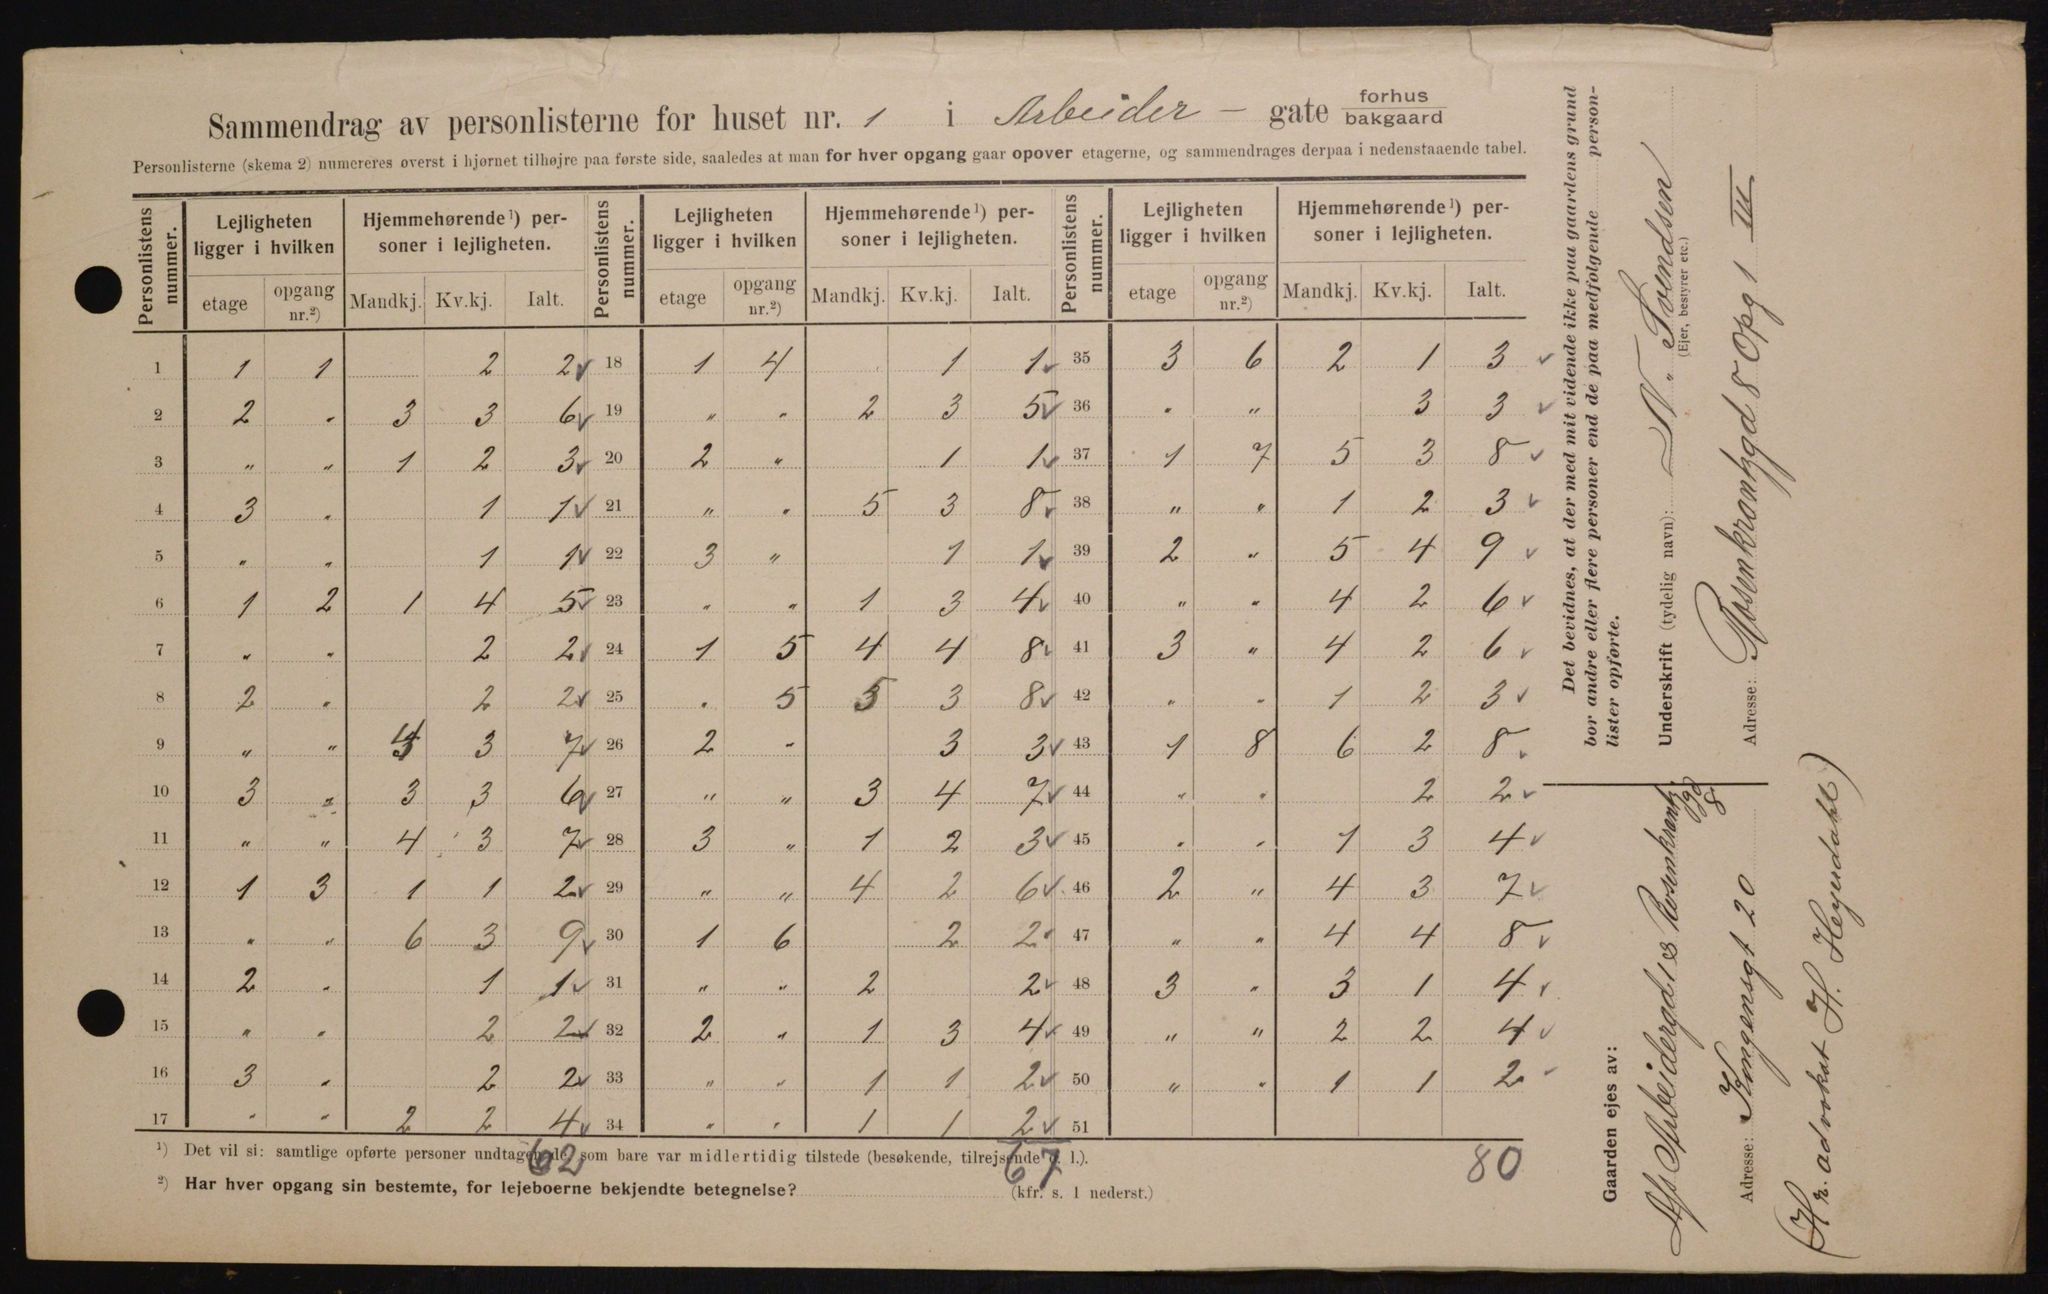 Sammendrag av personlisterne for huset nr. 1 i Arbeider - gate forhus bakgaard
Personlisterne (skema 2) numereres øverst i hjørnet tilhøjre paa første side, saaledes at man for hver opgang gaar opover etagerne, og sammendrages derpaa i nedenstaaende tabel.
Personlistens nummer. Lejligheten ligger i hvilken Hjemmehørende ¹) personer i lejligheten. Personlistens nummer. Lejligheten ligger i hvilken Hjemmehørende ¹) personer i lejligheten. Personlistens nummer. Lejligheten ligger i hvilken Hjemmehørende ¹) personer i lejligheten.
etage opgang nr.²) Mandkj. Kv.kj. Ialt. etage opgang nr.²) Mandkj. Kv.kj. Ialt. etage opgang nr.²) Mandkj. Kv.kj. Ialt.
1 1 1 2 2 18 1 4 1 1 35 3 6 2 1 3
2 2 " 3 3 6 19 " " 2 3 5 36 " " 3 3
3 " " 1 2 3 20 2 " 1 1 37 1 7 5 3 8
4 3 " 1 1 21 " " 5 3 8 38 " " 1 2 3
5 " " 1 1 22 3 " 1 1 39 2 " 5 4 9
6 1 2 1 4 5 23 " " 1 3 4 40 " " 4 2 6
7 " " 2 2 24 1 5 4 4 8 41 3 " 4 2 6
8 2 " 2 2 25 " 5 5 3 8 42 " " 1 2 3
9 " " 4 3 7 26 2 " 3 3 43 1 8 6 2 8
10 3 " 3 3 6 27 " " 3 4 7 44 " " 2 2
11 " " 4 3 7 28 3 " 1 2 3 45 " " 1 3 4
12 1 3 1 1 2 29 " " 4 2 6 46 2 " 4 3 7
13 " " 6 3 9 30 1 6 2 2 47 " " 4 4 8
14 2 " 1 1 31 " " 2 2 48 3 " 3 1 4
15 " " 2 2 32 2 " 1 3 4 49 " " 2 2 4
16 3 " 2 2 33 " " 1 1 2 50 " " 1 1 2
17 " " 2 2 4 34 " " 1 1 2 51
62 67 80
¹) Det vil si: samtlige opførte personer undtagen de, som bare var midlertidig tilstede (besøkende, tilrejsende o. l.).
²) Har hver opgang sin bestemte, for lejeboerne bekjendte betegnelse? (kfr. s. 1 nederst.)
Det bevidnes, at der med mit vidende ikke paa gaardens grund
bor andre eller flere personer end de paa medfølgende person-
lister opførte.
Underskrift (tydelig navn): N. Svendsen
(Ejer, bestyrer etc.)
Adresse: Rosenkrantzgd 8 Opg 1 III
Gaarden ejes av:
A/s Arbeidergd 1 & Rosenkrantz
gd 8
Adresse: Kongensgt 20
(Hr. advokat H. Heyerdahl)